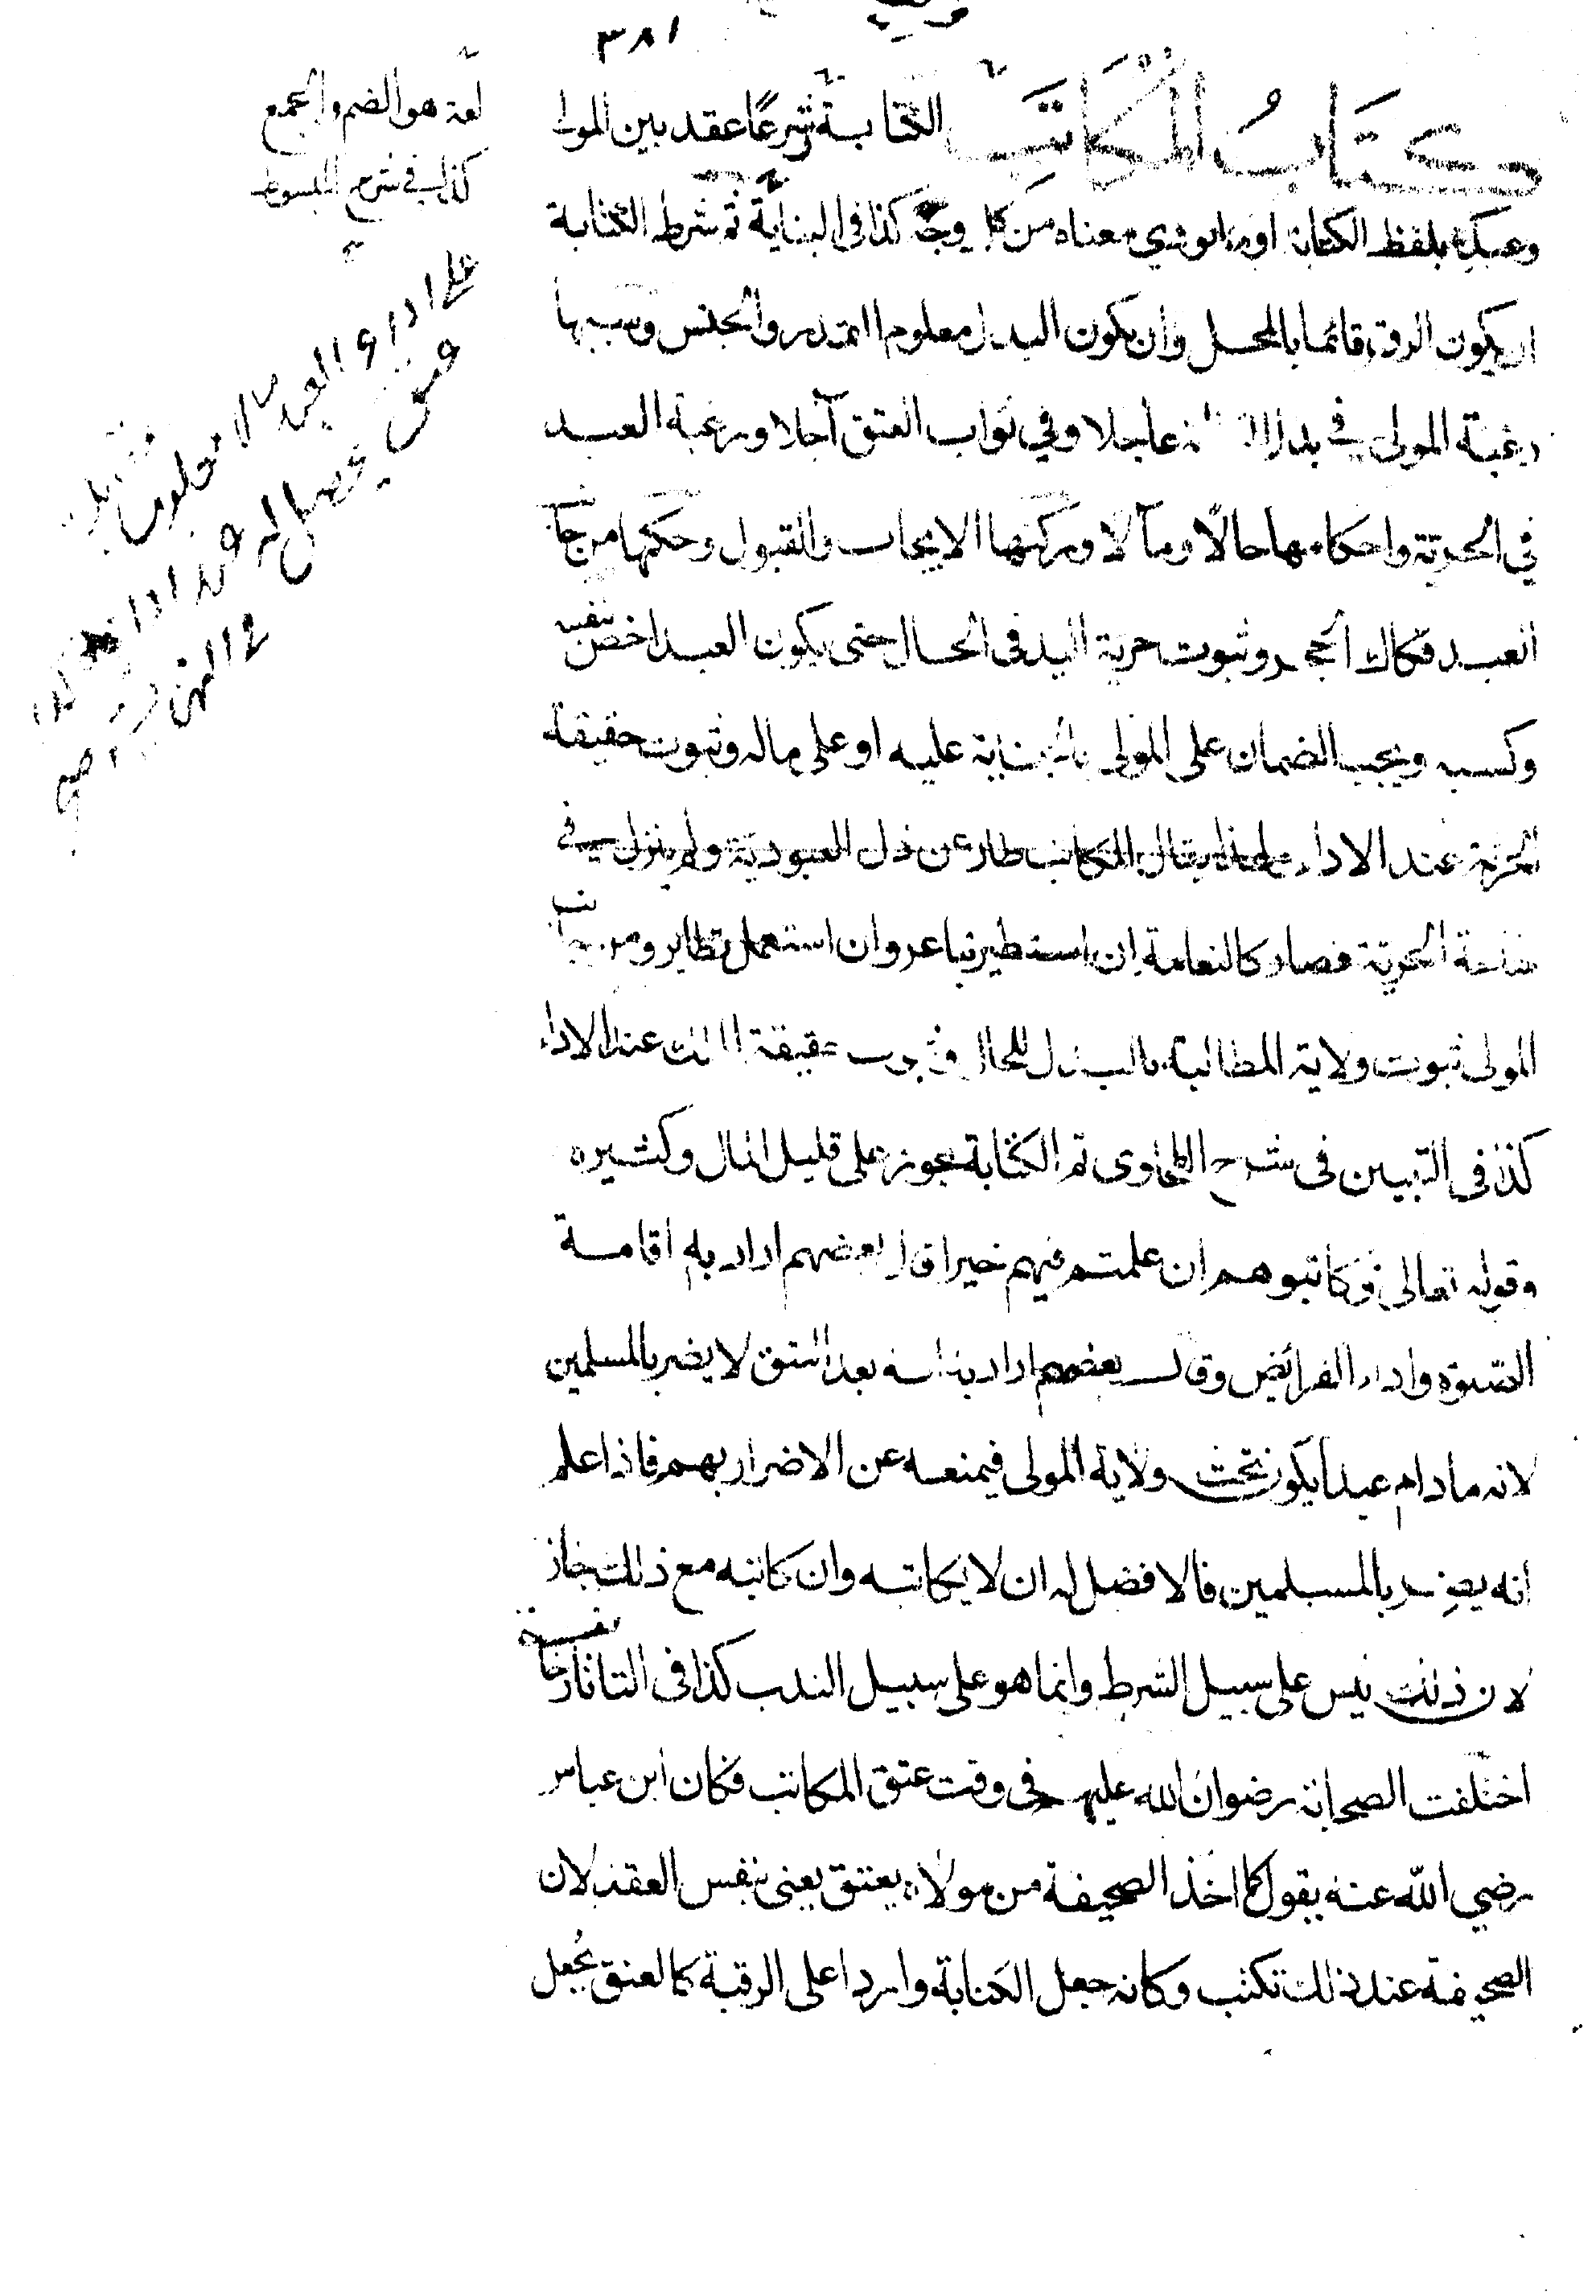 ٣٨١
كتاب المكاتب الكتابة شرعا عقد بين المولى
وعبده بلفظ الكتابة او ما يودي معناه من كل وجه كذا في البناية ثم شرط الكتابة
ان يكون الرق قائما بالمحل وان يكون البدل معلوم القدر والجنس وسببها
رغبة المولى في بدل عاجلا وفي ثواب العتق آجلا ورغبة العبد
في الحرية واحكامها حالا ومآلا وركنها الايجاب والقبول وحكمها من جانب
العبد فكاك الحجر وثبوت حرية اليد في الحال حتى يكون العبد اخص بنفسه
وكسبه ويجب الضمان على المولى بالجناية عليه او على ماله وثبوت حقيقة
الحرية عند الاداء ولهذا يقال المكاتب طار عن ذل العبودية ولم ينزل في
ساحة الحرية فصار كالنعامة ان استطير تباعر وان استعمل تطاير ومن جانب
المولى ثبوت ولاية المطالبة بالبدل للحال وثبوت حقيقة الملك عند الاداء
كذا في التبيين في شرح الطحاوى ثم الكتابة يجوز على قليل المال وكثيره
وقوله تعالى فكاتبوهم ان علمتم فيهم خيرا قال بعضهم اراد به اقامة
الصلوة واداء الفرائض وقال بعضهم اراد به انه بعد العتق لا يضر بالمسلمين
لانه ما دام عبدا يكون تحت ولاية المولى فيمنعه عن الاضرار بهم فاذا علم
انه يضر بالمسلمين فالافضل له ان لا يكاتبه وان كاتبه مع ذلك جاز
لان ذلك ليس على سبيل الشرط وانما هو على سبيل الندب كذا في التاتارخانية
اختلفت الصحابة رضوان الله عليهم في وقت عتق المكاتب فكان ابن عباس
رضي الله عنه يقول كما اخذ الصحيفة من مولاه يعتق يعني بنفس العقد لان
الصحيفة عند ذلك تكتب وكانه جعل الكتابة واردا على الرقبة كالعتق بجعل
لغة هو الضم والجمع
كذا في شرح المبسوط